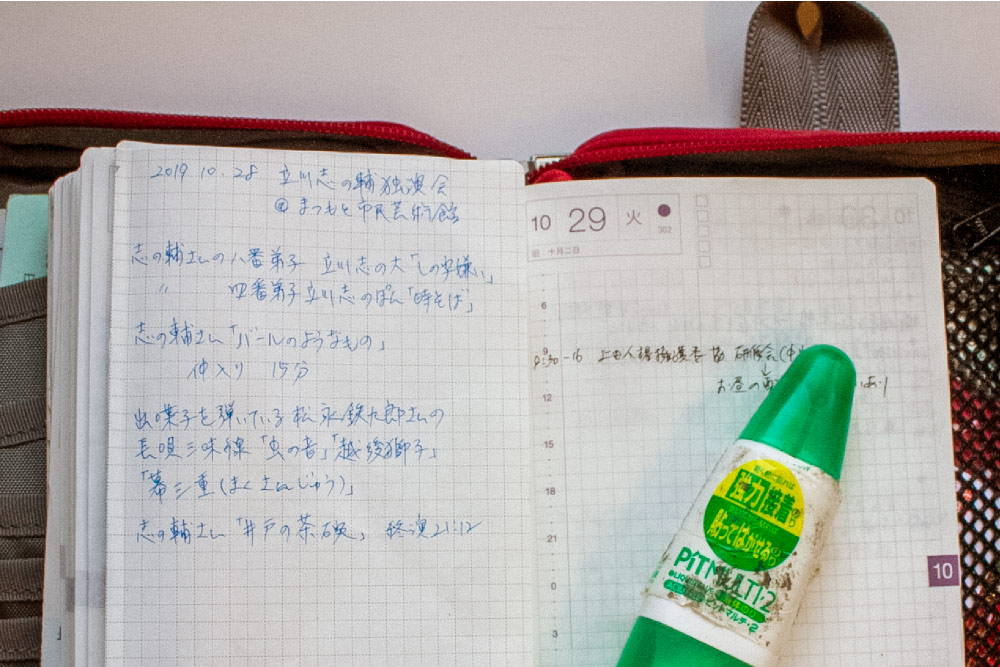 2019 10. 28 立川志の輔独演会
@ まつもと市民芸術館
志の輔さんの八番弟子 立川志の大「しの字嫌い」
〃 四番弟子立川志のぽん「時そば」
志の輔さん「バールのようなもの」
仲入り 15分
出囃子を弾いている松永鉄九郎さんの
長唄三味線「虫の音」「越後獅子」
「幕三重(まくさんじゅう)」
志の輔さん「井戸の茶碗」 終演21:12
10 29 火
302
旧 十月二日
6
9
9:30-16 上田人権擁護委協 研修会
12
お昼の
あり
15
18
21
0
3
10
強力接着
貼ってはがせる
PiT MULTI・2
ピットマルチ・2